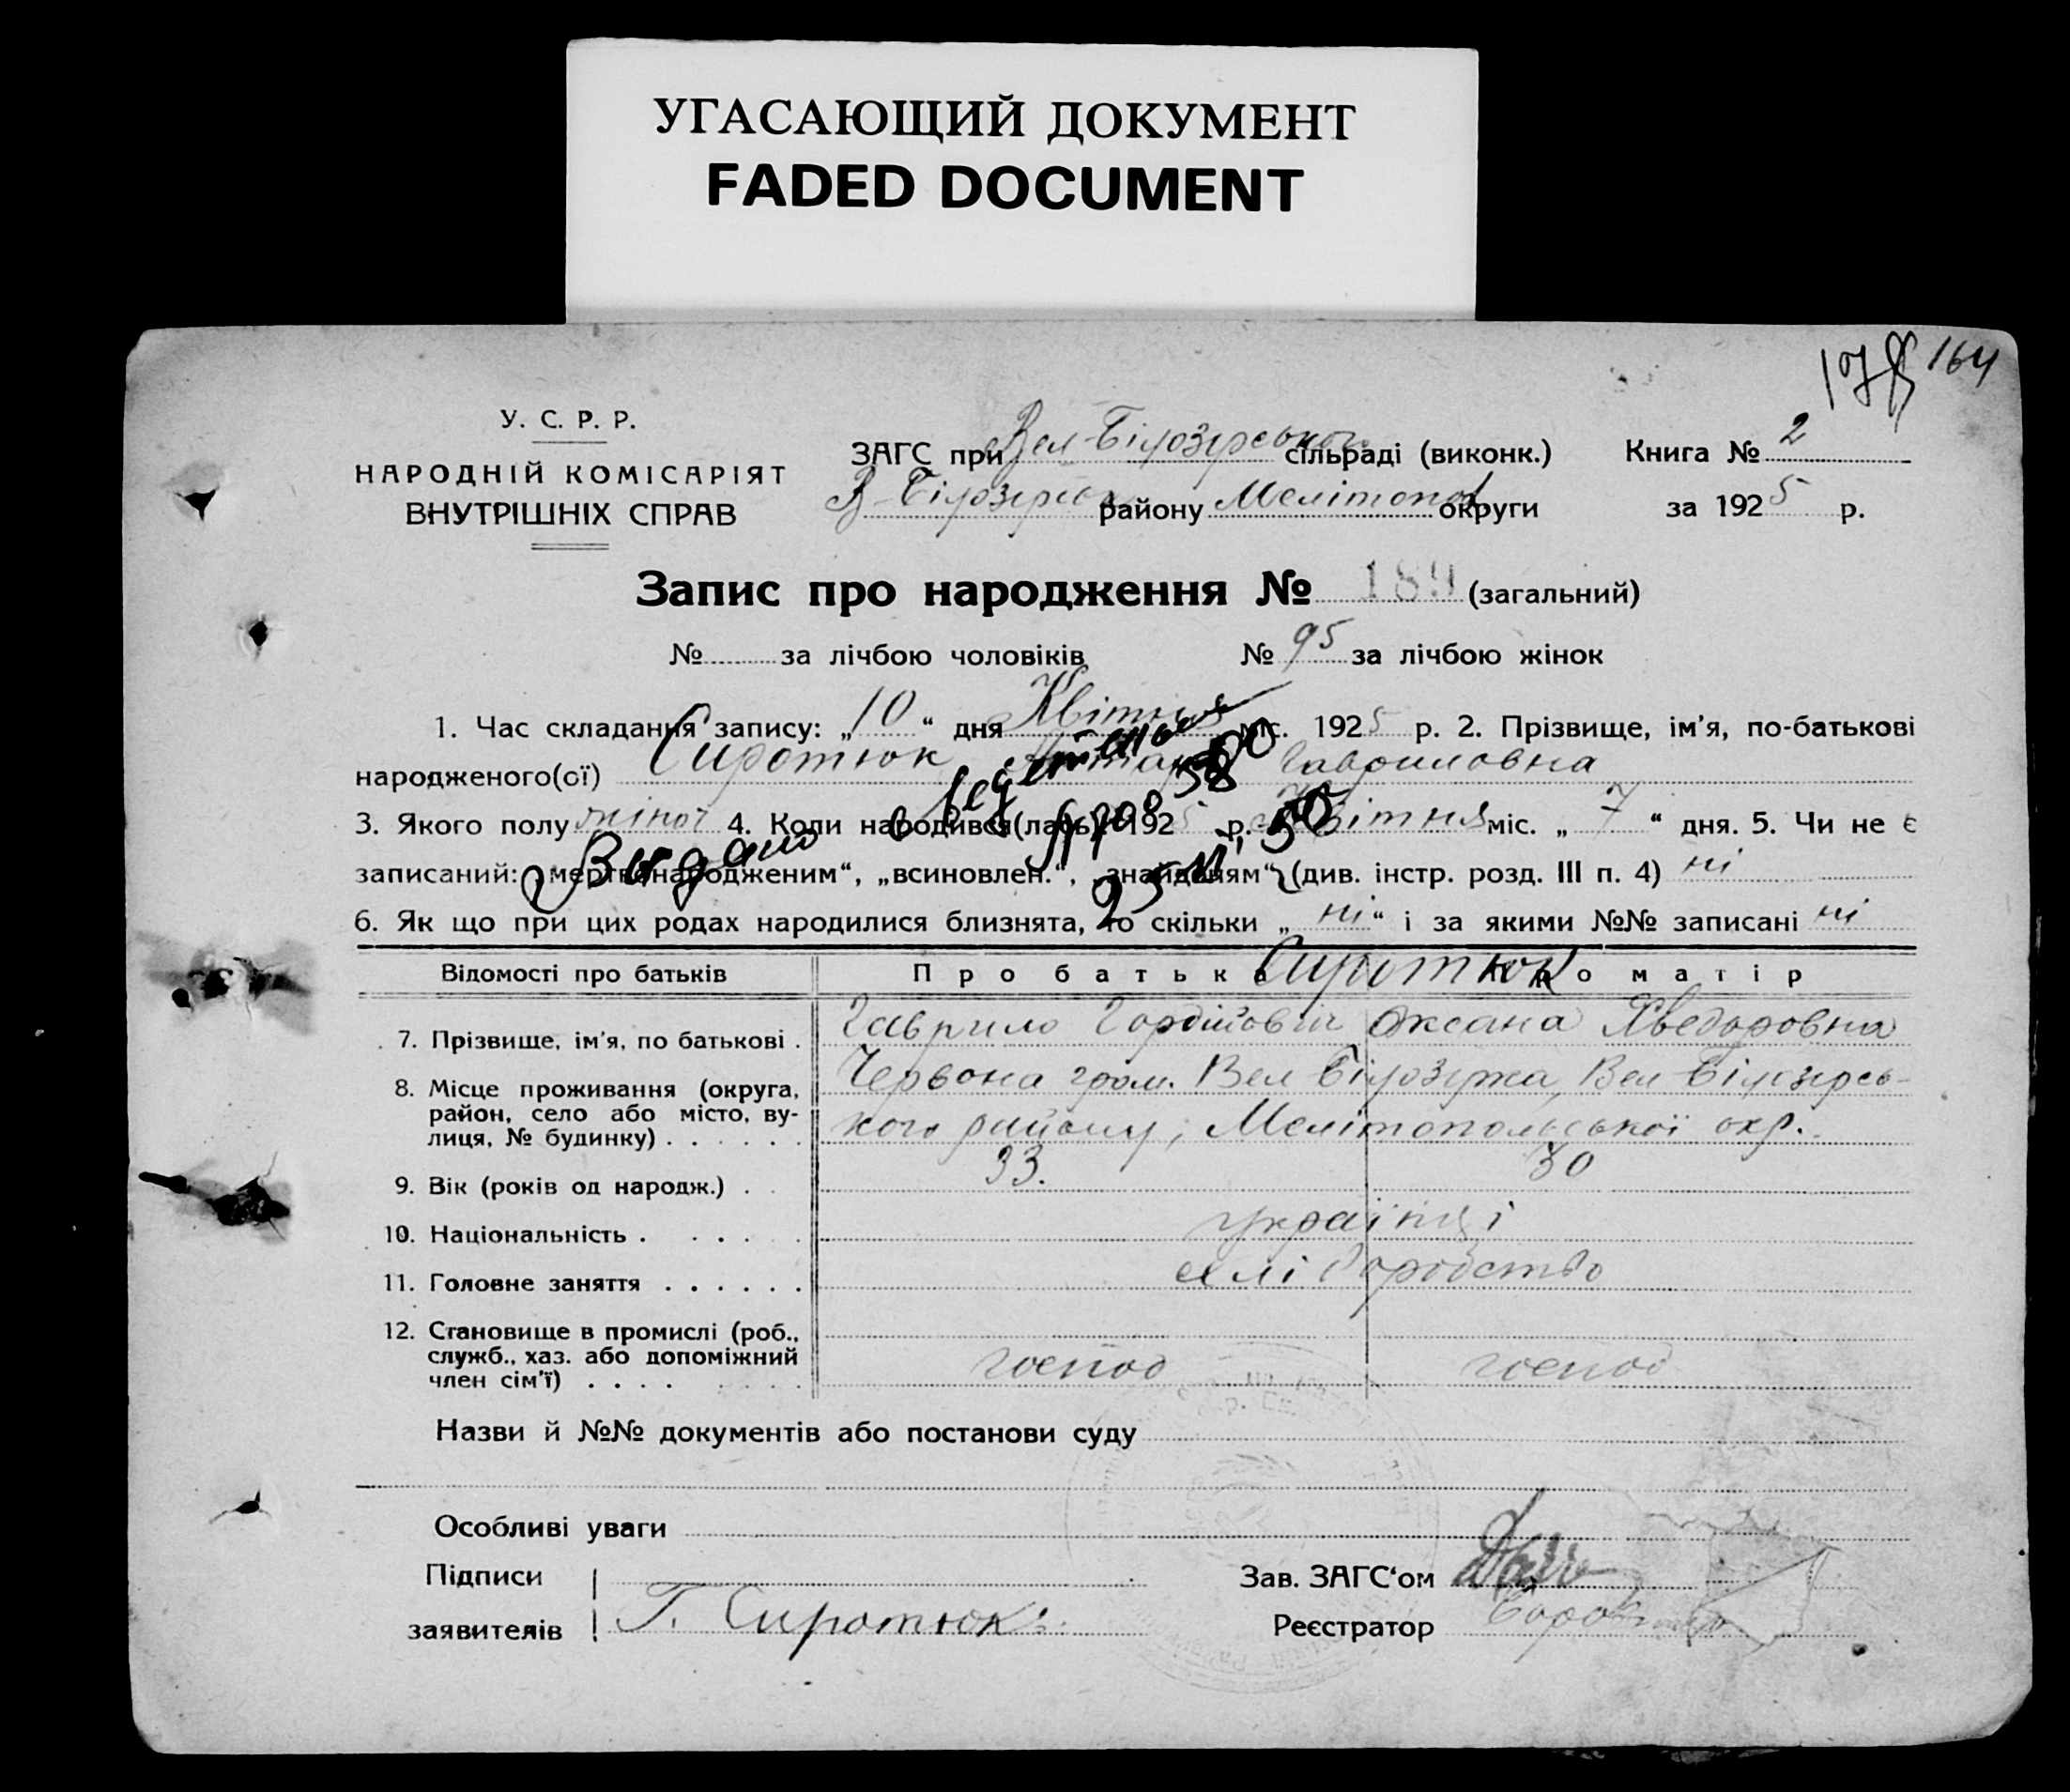 УГАСАЮЩИЙ ДОКУМЕНТ
FADED DOCUMENT
164
У. С. Р. Р.
НАРОДНІЙ КОМІСАРІЯТ
ВНУТРІШНІХ СПРАВ
ЗАГС при Вел-Білозірської сільраді (виконк.) Книга № 2
В-Білозірськ району Мелітопол округи за 1925 р.
Запис про народження № 189 (загальний)
№ за лічбою чоловіків № 95 за лічбою жінок
1. Час складання запису: „10“ дня Квітня міс. 1925 р. 2. Прізвище, ім'я, по-батькові
народженого(ої) Сиротюк Гавриловна
3. Якого полу жіноч 4. Коли народився(лась)? 1925 р. Квітня міс. „7“ дня. 5. Чи не є
записаний: „мертвонародженим“, „всиновлен.“, „знайденям“ (див. інстр. розд. III п. 4) ні
Видано
6. Як що при цих родах народилися близнята, то скільки „ні“ і за якими №№ записані ні
Відомості про батьків Про батька Про матір
Сиротюк
7. Прізвище, ім'я, по батькові . Гаврило Гордійович Оксана Хведоровна
8. Місце проживання (округа, район, село або місто, ву-лиця, № будинку) . . . . . . Червона гром. Вел Білозірка, Вел Білозірсь-
кого району, Мелітопольської окр.
9. Вік (років од народж.) . . 33. 30
10. Національність . . . . . українці
11. Головне заняття . . . . . . хліборобство
12. Становище в промислі (роб., служб., хаз. або допоміжний член сім'ї) . . . . господ господ
Назви й №№ документів або постанови суду
Особливі уваги
Підписи
заявителів Г. Сиротюк
Зав. ЗАГС'ом
Реєстратор